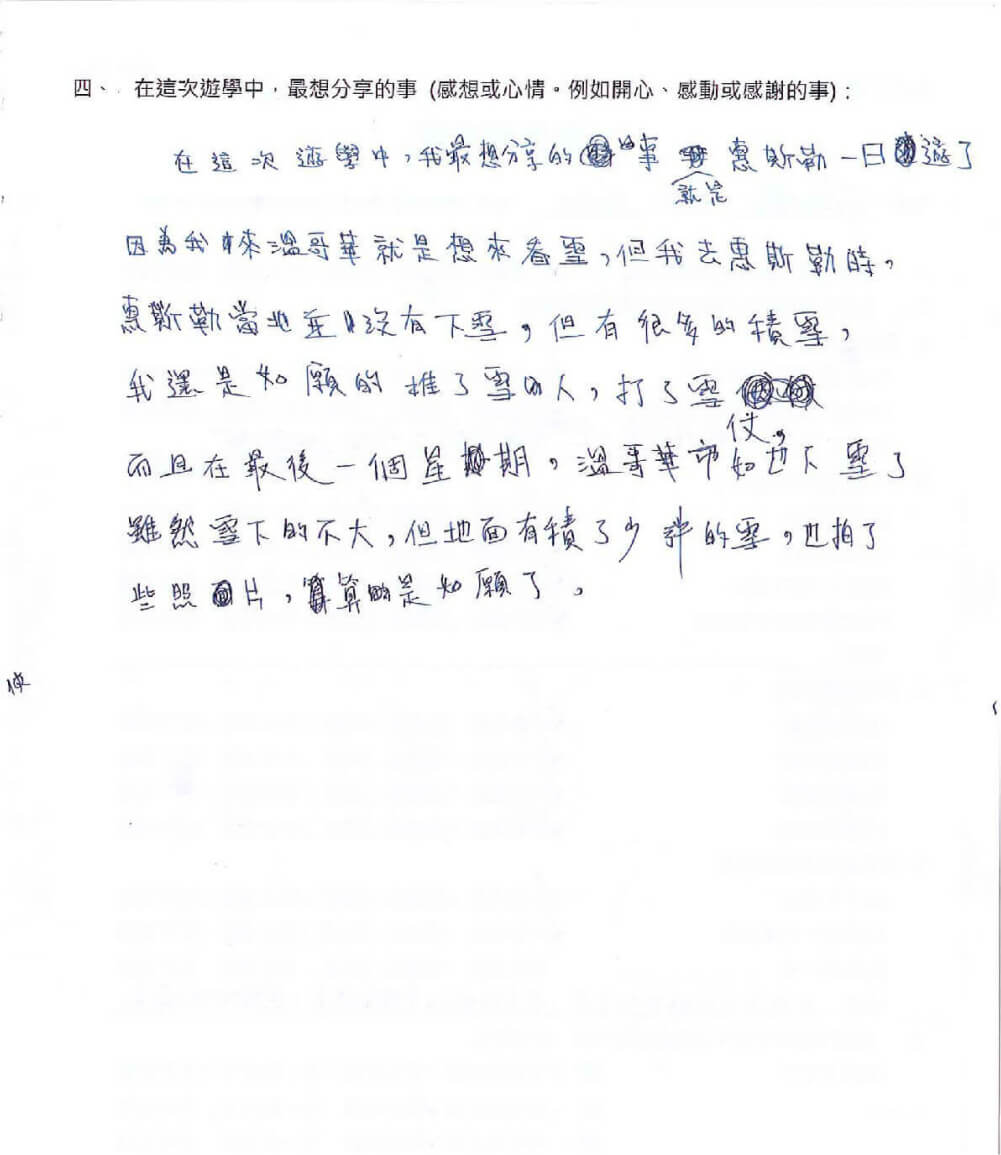 四、 在這次遊學中，最想分享的事 (感想或心情。例如開心、感動或感謝的事)：
在這次遊學中，我最想分享的事就是惠斯勒一日遊了
因為我來溫哥華就是想來看雪，但我去惠斯勒時，
惠斯勒當地並沒有下雪，但有很多的積雪，
我還是如願的堆了雪人，打了雪仗。
而且在最後一個星期，溫哥華市也下雪了
雖然雪下的不大，但地面有積了少許的雪，也拍了
些照片，算是如願了。